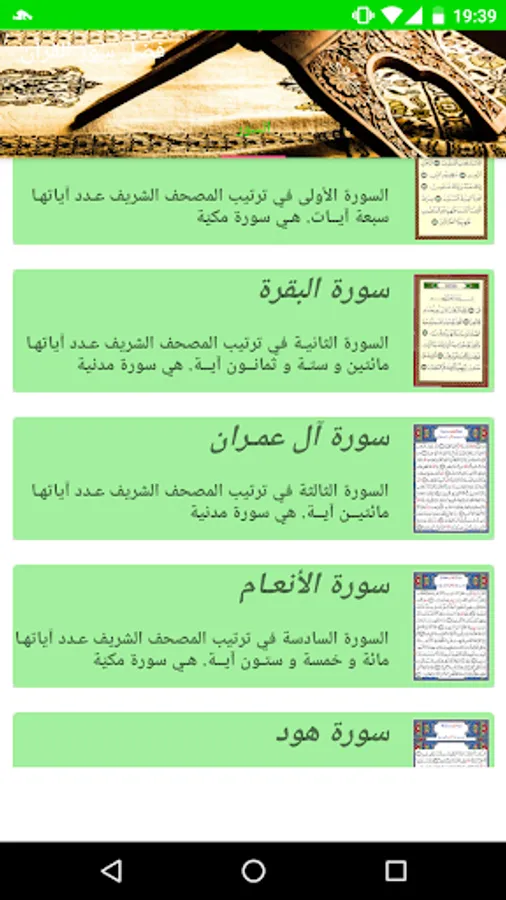 19:39
السور
السورة الأولى في ترتيب المصحف الشريف عـدد آياتهـا
سبعة آيــات. هـي سورة مكيّة
سورة البقرة
السورة الثانيـة في ترتيب المصحف الشريف عـدد آياتهـا
مائتين و ستـة و ثمانــون آيــة. هي سورة مدنية
سورة آل عمـران
السورة الثالثة في ترتيب المصحف الشريف عـدد آياتهـا
مائتيــن آيــة. هي سورة مدنية
سورة الأنعـام
السورة السادسة في ترتيب المصحف الشريف عـدد آياتهـا
مائة و خمسة و ستـون آيــة. هـي سورة مكيّة
سورة هود